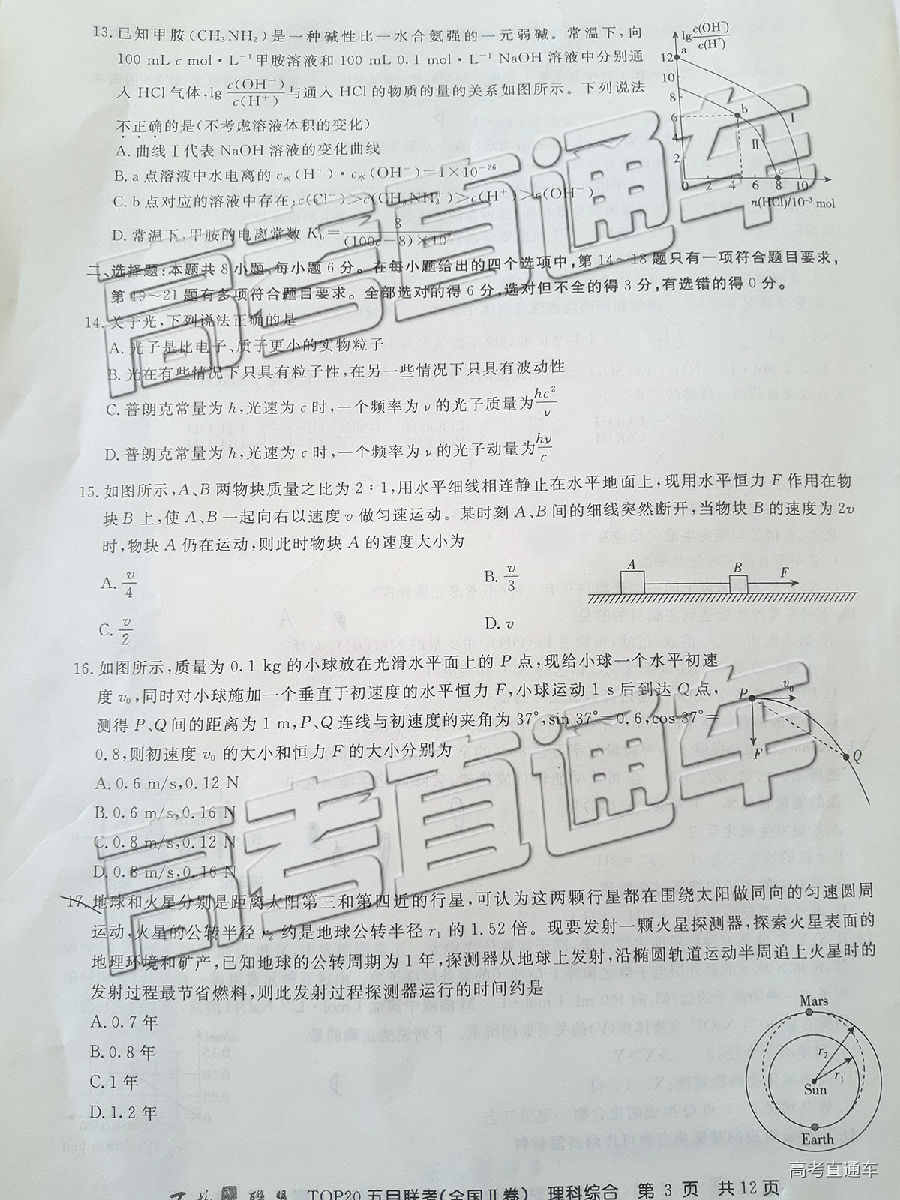 13.已知甲胺(CH₃NH₂)是一种碱性比一水合氨强的一元弱碱。常温下,向
100 mL c mol·L⁻¹甲胺溶液和 100 mL 0.1 mol·L⁻¹ NaOH 溶液中分别通
入 HCl气体,lg c(OH⁻)/c(H⁺) 与通入 HCl 的物质的量的关系如图所示。下列说法
不正确的是(不考虑溶液体积的变化)
A.曲线Ⅰ代表 NaOH 溶液的变化曲线
B.a 点溶液中水电离的 c水(H⁺)·c水(OH⁻)=1×10⁻²⁶
C.b 点对应的溶液中存在:c(Cl⁻)>c(CH₃NH₃⁺)>c(H⁺)>c(OH⁻)
D.常温下,甲胺的电离常数 Kb=8/(100c-8)×10⁴
lg c(OH⁻)/c(H⁺)
12
10
8
6
4
2
a
b
c
Ⅰ
Ⅱ
0 2 4 6 8 10
n(HCl)/10⁻³ mol
二、选择题:本题共 8 小题,每小题 6 分。在每小题给出的四个选项中,第 14~18 题只有一项符合题目要求,
第 19~21 题有多项符合题目要求。全部选对的得 6 分,选对但不全的得 3 分,有选错的得 0 分。
14.关于光,下列说法正确的是
A.光子是比电子、质子更小的实物粒子
B.光在有些情况下只具有粒子性,在另一些情况下只具有波动性
C.普朗克常量为 h,光速为 c 时,一个频率为 ν 的光子质量为 hc²/ν
D.普朗克常量为 h,光速为 c 时,一个频率为 ν 的光子动量为 hν/c
15.如图所示,A、B 两物块质量之比为 2:1,用水平细线相连静止在水平地面上,现用水平恒力 F 作用在物
块 B 上,使 A、B 一起向右以速度 v 做匀速运动。某时刻 A、B 间的细线突然断开,当物块 B 的速度为 2v
时,物块 A 仍在运动,则此时物块 A 的速度大小为
A. v/4
B. v/3
C. v/2
D. v
A B F
16.如图所示,质量为 0.1 kg 的小球放在光滑水平面上的 P 点,现给小球一个水平初速
度 v₀,同时对小球施加一个垂直于初速度的水平恒力 F,小球运动 1 s 后到达 Q 点,
测得 P、Q 间的距离为 1 m,P、Q 连线与初速度的夹角为 37°,sin 37°=0.6,cos 37°=
0.8,则初速度 v₀ 的大小和恒力 F 的大小分别为
A.0.6 m/s,0.12 N
B.0.6 m/s,0.16 N
C.0.8 m/s,0.12 N
D.0.8 m/s,0.16 N
P v₀
F
Q
17.地球和火星分别是距离太阳第三和第四近的行星,可认为这两颗行星都在围绕太阳做同向的匀速圆周
运动,火星的公转半径 r₂ 约是地球公转半径 r₁ 的 1.52 倍。现要发射一颗火星探测器,探索火星表面的
地理环境和矿产,已知地球的公转周期为 1 年,探测器从地球上发射,沿椭圆轨道运动半周追上火星时的
发射过程最节省燃料,则此发射过程探测器运行的时间约是
A.0.7 年
B.0.8 年
C.1 年
D.1.2 年
Mars
r₂
r₁
Sun
Earth
TOP20 五月联考(全国Ⅱ卷) 理科综合 第 3 页 共 12 页
高考直通车
高考直通车
高考直通车